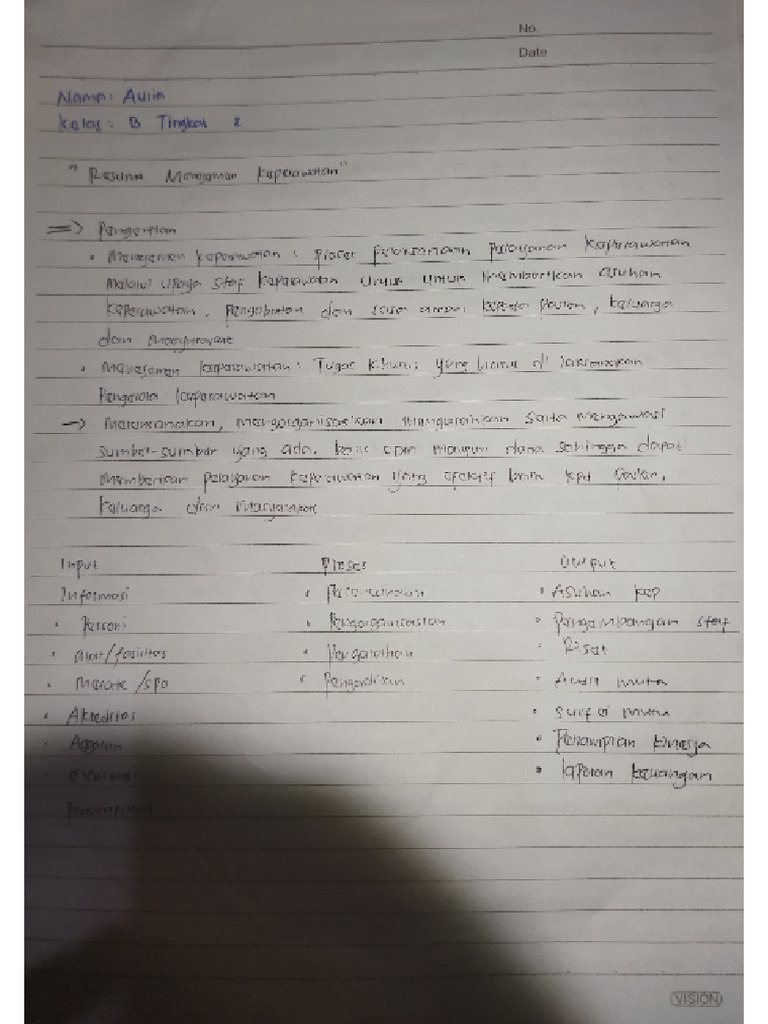 No.
Date
Nama: Aulia
Kelas: B Tingkat 2
"Resume Manajemen Keperawatan"
=> Pengertian
• Manajemen keperawatan: Proses pelaksanaan pelayanan keperawatan
melalui upaya staf keperawatan untuk untuk memberikan asuhan
keperawatan, pengobatan dan rasa aman kepada pasien, keluarga
dan masyarakat
• Manajemen keperawatan: Tugas khusus yang harus di laksanakan
Pengelola keperawatan
-> Merencanakan, mengorganisasikan mengarahkan serta mengawasi
sumber-sumber yang ada. baik SDM maupun dana sehingga dapat
memberikan pelayanan keperawatan yang efektif baik kpd pasien,
keluarga dan masyarakat
Input Proses Output
Informasi • Perencanaan • Asuhan kep
• Personi • Pengorganisasian • Pengembangan staf
• alat/fasilitas • Pengarahan Riset
• Metode/SPO • Pengendalian Audit mutu
• Akreditas • Surfei mutu
• • Penampilan kinerja
• evaluasi • laporan keuangan
Penampilan
VISION